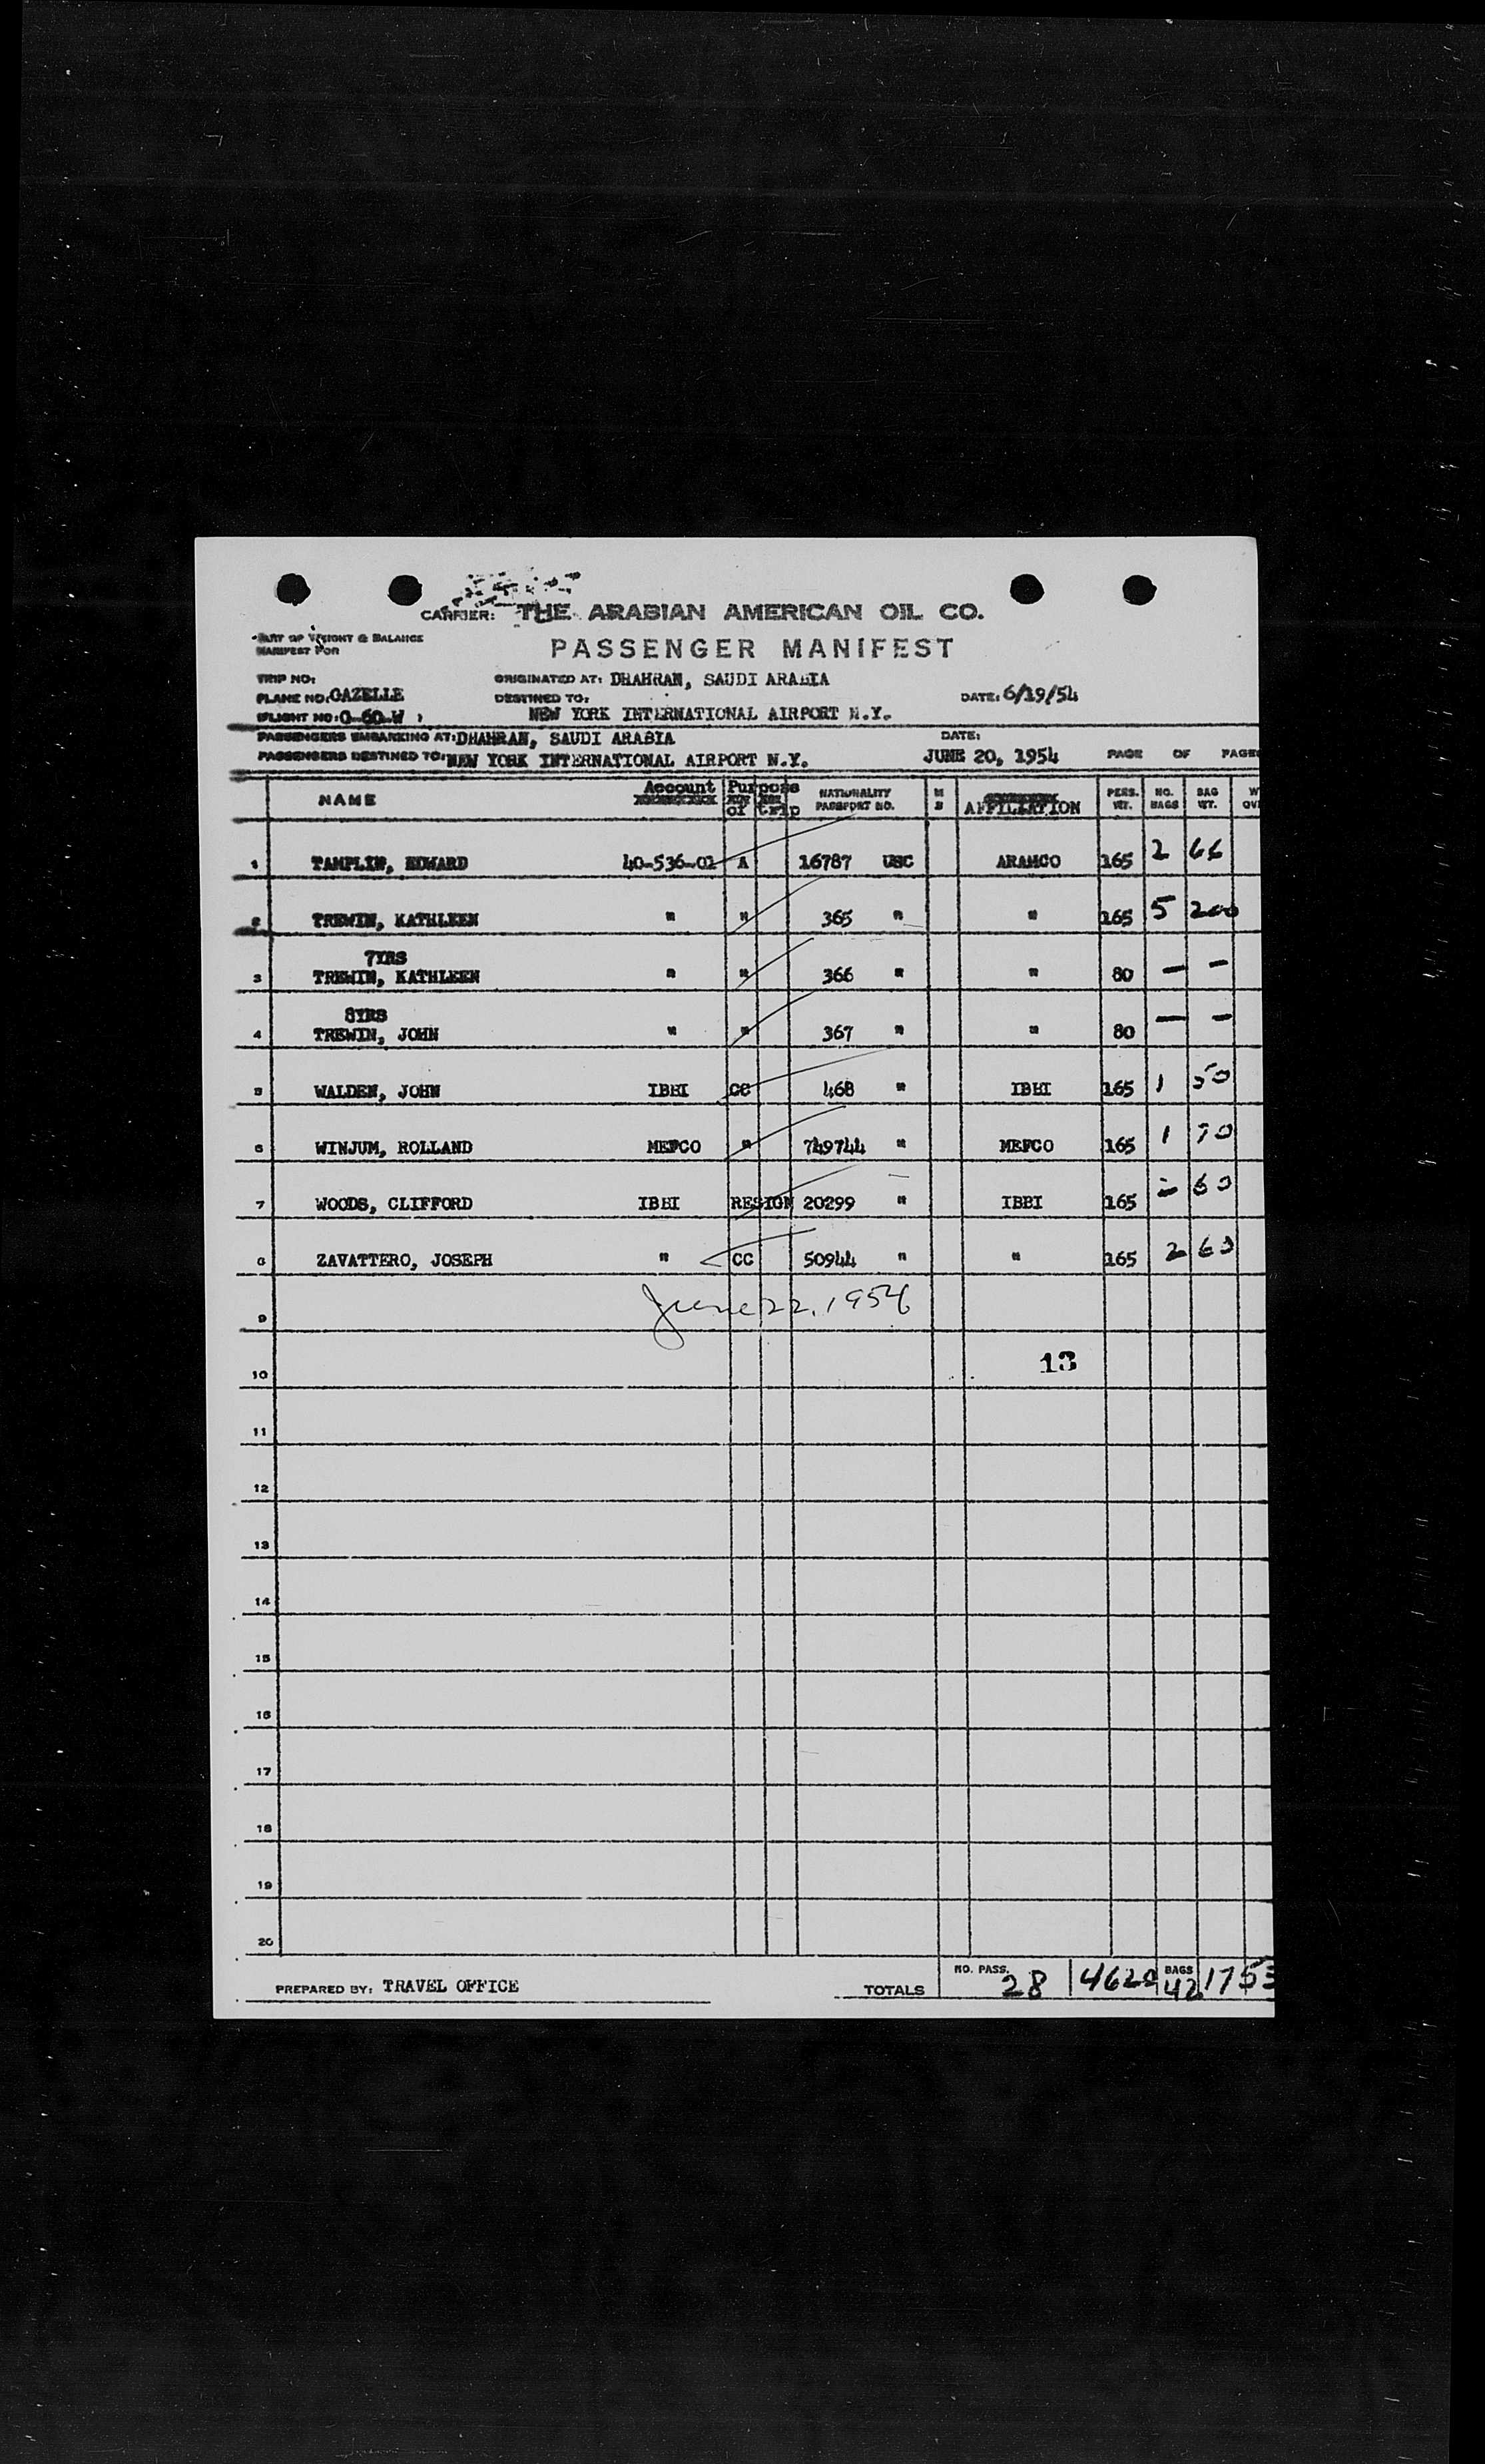 CARRIER: THE ARABIAN AMERICAN OIL CO.
PART OF WEIGHT & BALANCE
MANIFEST FOR
PASSENGER MANIFEST
TRIP NO:
ORIGINATED AT: DHAHRAN, SAUDI ARABIA
PLANE NO: GAZELLE
DESTINED TO:
DATE: 6/19/54
FLIGHT NO: O-60-W
NEW YORK INTERNATIONAL AIRPORT N.Y.
PASSENGERS EMBARKING AT: DHAHRAN, SAUDI ARABIA
DATE:
PASSENGERS DESTINED TO: NEW YORK INTERNATIONAL AIRPORT N.Y.
JUNE 20, 1954 PAGE OF PAGE
NAME Account Purpose of trip NATIONALITY PASSPORT NO. AFFILIATION PERS. WT. NO. BAGS BAG WT. W OV
1 TAMPLIN, EDWARD 40-536-02 A 16787 USC ARAMCO 165 2 66
2 TREWIN, KATHLEEN " " 365 " " 165 5 200
7YRS
3 TREWIN, KATHLEEN " " 366 " " 80 — —
8YRS
4 TREWIN, JOHN " " 367 " " 80 — —
5 WALDEN, JOHN IBBI CC 468 " IBBI 165 1 50
6 WINJUM, ROLLAND MEFCO " 749744 " MEFCO 165 1
7 WOODS, CLIFFORD IBBI RESIGN 20299 " IBBI 165 60
8 ZAVATTERO, JOSEPH " CC 50944 " " 165 2 60
9 June 22, 1954
10 13
11
12
13
14
15
16
17
18
19
20
PREPARED BY: TRAVEL OFFICE TOTALS NO. PASS. 28 4620 BAGS 42 1753